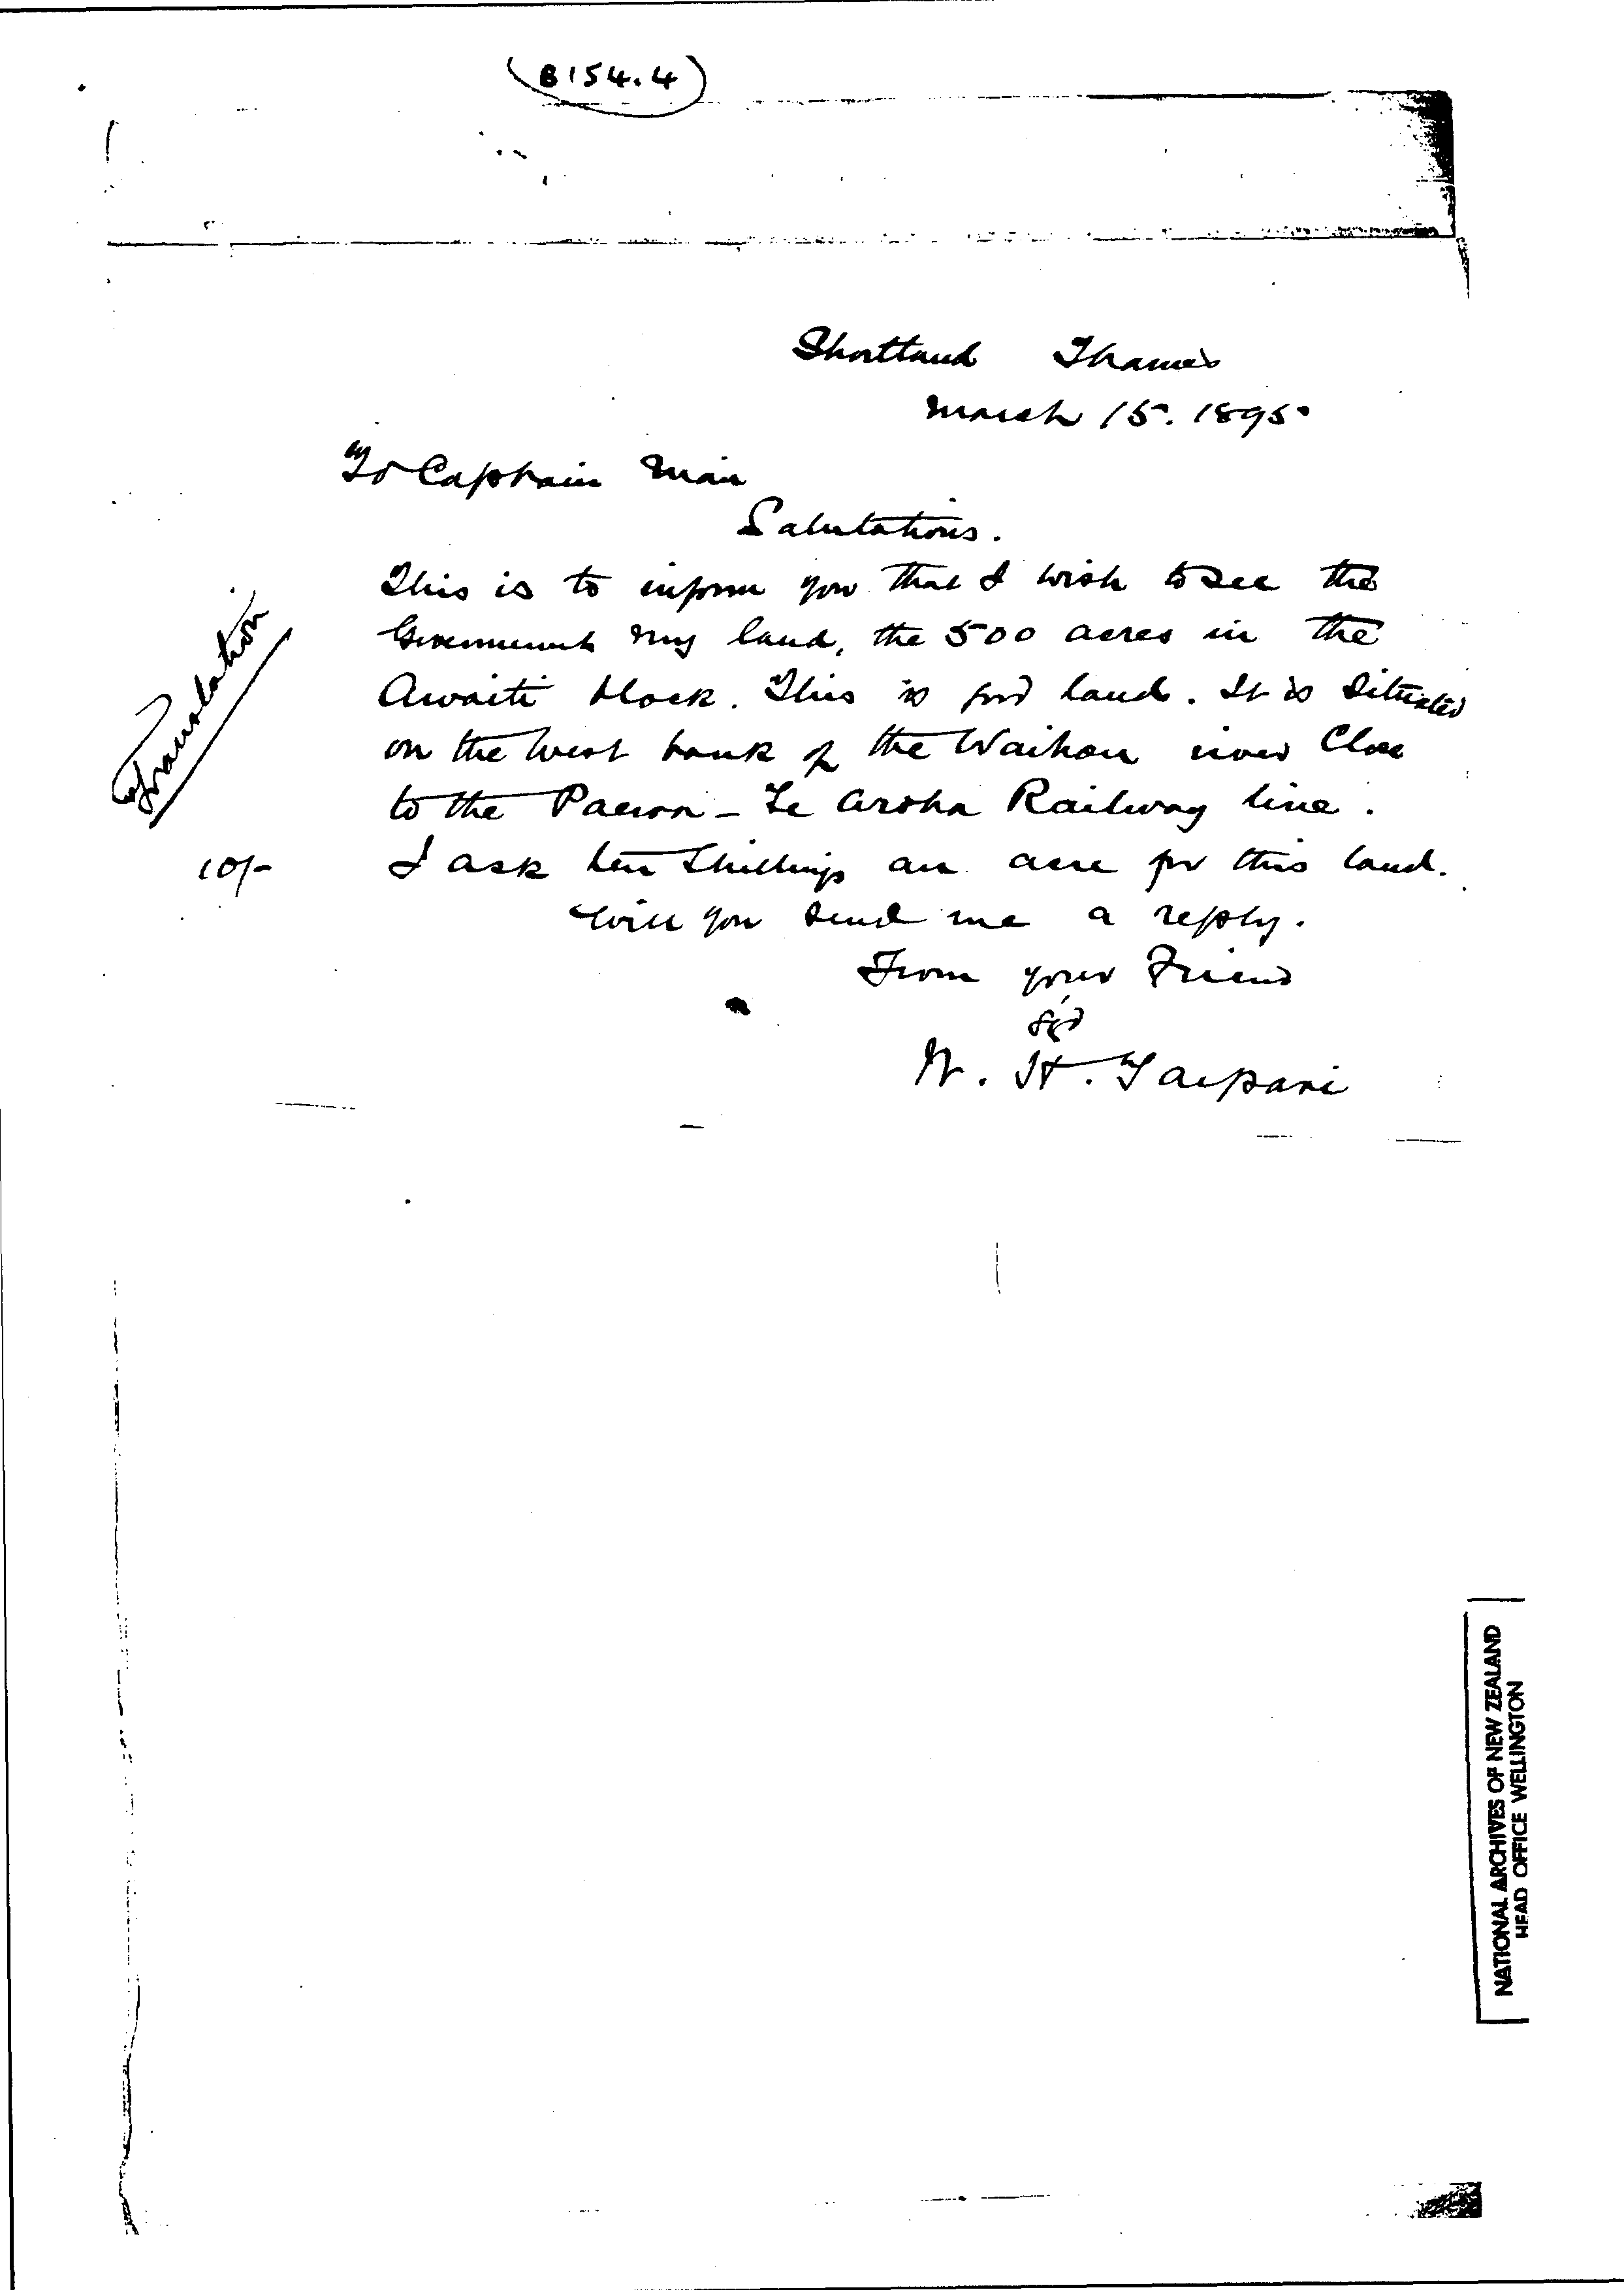 B154.4
Shortland Thames
March 15. 1895.
To Captain Mair
Salutations.
This is to inform you that I wish to see the
Government my land, the 500 acres in the
Awaiti block. This is good land. It is Situated
on the West bank of the Waihou river Close
to the Paeroa - Te Aroha Railway line.
I ask ten Shillings an acre for this land.
Will you send me a reply.
From your Friend
Sgd
W. H. Taipari
Translation
10/-
NATIONAL ARCHIVES OF NEW ZEALAND
HEAD OFFICE WELLINGTON